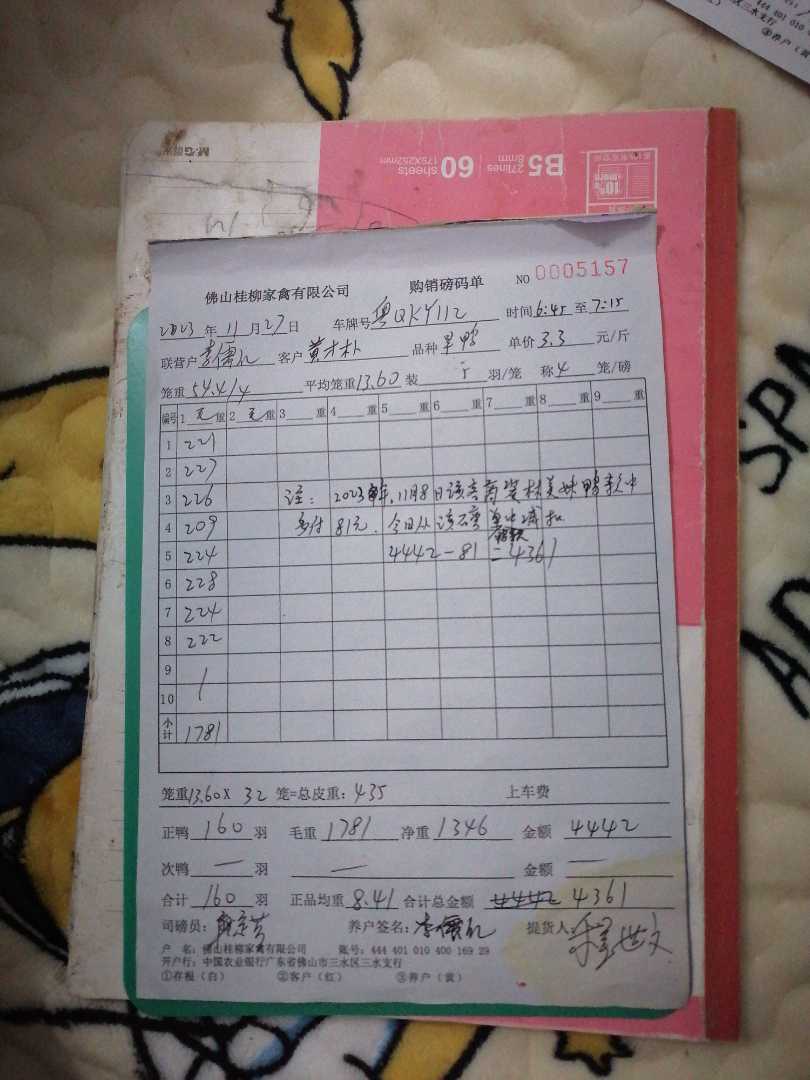 佛山桂柳家禽有限公司 购销磅码单 NO 0005157
2023 年 11 月 27 日 车牌号 粤QKY112 时间 6:45 至 7:15
联营户 客户 黄才朴 品种 单价 3.3 元/斤
笼重 54.4/4 平均笼重 13.60 装 5 羽/笼 称 4 笼/磅
编号 1 毛 重 2 毛 重 3 重 4 重 5 重 6 重 7 重 8 重 9 重
1 221
2 227
3 226
4 209
5 224
6 228
7 224
8 222
9
10
小计 1781
注: 2023年,11月8日该客商 林美妹鸭款中
多付 81元.今日从该 单中减扣
4442-81=4361
笼重 13.60 X 32 笼=总皮重: 435 上车费
正鸭 160 羽 毛重 1781 净重 1346 金额 4442
次鸭 — 羽 — 金额 —
合计 160 羽 正品均重 8.41 合计总金额 4442 4361
司磅员: 养户签名: 提货人:
户 名: 佛山桂柳家禽有限公司 账号: 444 401 010 400 169 29
开户行: 中国农业银行广东省佛山市三水区三水支行
①存根(白) ②客户(红) ③养户(黄)
B5
27lines
8mm
60
sheets
175X252mm
M&G
10%
more
444 401 010
区三水支行
③养户(黄
SPA
AD